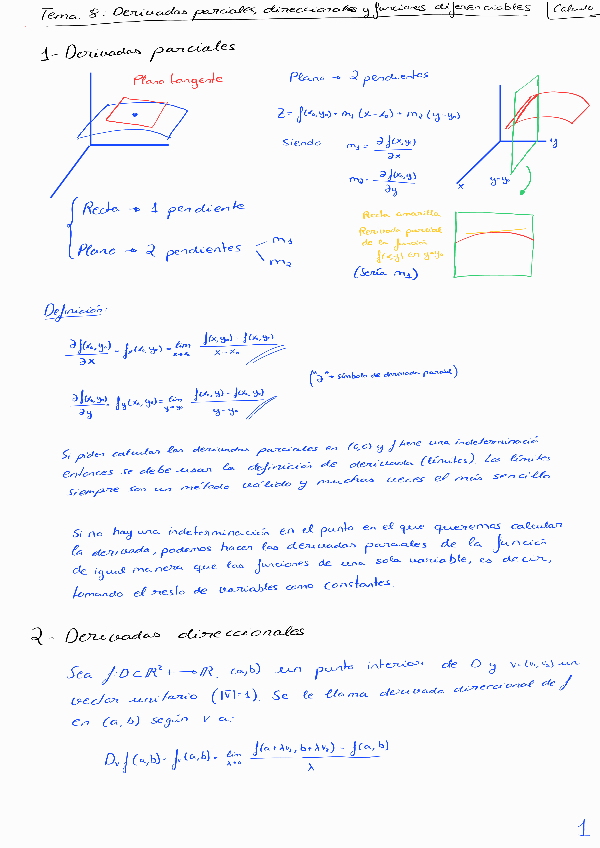 Tema. 8. Derivadas parciales, direccionales y funciones diferenciables | Cálculo
1- Derivadas parciales
Plano tangente
Plano → 2 pendientes
Z = f(x₀,y₀) + m₁ (x-x₀) + m₂ (y-y₀)
Siendo m₁ = ∂f(x,y)/∂x
m₂ = ∂f(x,y)/∂y
y
x
y=y₀
Recta → 1 pendiente
Plano → 2 pendientes
m₁
m₂
Recta amarilla
Derivada parcial
de la función
f(x,y) en y=y₀
(Sería m₁)
Definición:
∂f(x₀,y₀)/∂x = fₓ(x₀,y₀) = lim x→x₀ (f(x,y₀) - f(x₀,y₀))/(x-x₀)
("∂" = símbolo de derivada parcial)
∂f(x₀,y₀)/∂y = f_y(x₀,y₀) = lim y→y₀ (f(x₀,y) - f(x₀,y₀))/(y-y₀)
Si piden calcular las derivadas parciales en (0,0) y f tiene una indeterminación
entonces se debe usar la definición de derivada (límites). Los límites
siempre son un método válido y muchas veces el más sencillo
Si no hay una indeterminación en el punto en el que queremos calcular
la derivada, podemos hacer las derivadas parciales de la función
de igual manera que las funciones de una sola variable, es decir,
tomando el resto de variables como constantes.
2- Derivadas direccionales
Sea f: D⊂ℝ² → ℝ, (a,b) un punto interior de D y v=(v₁,v₂) un
vector unitario (|V|=1). Se le llama derivada direccional de f
en (a,b) según v a:
Dᵥf(a,b) = fᵥ(a,b) = lim λ→0 (f(a+λv₁, b+λv₂) - f(a,b))/λ
1